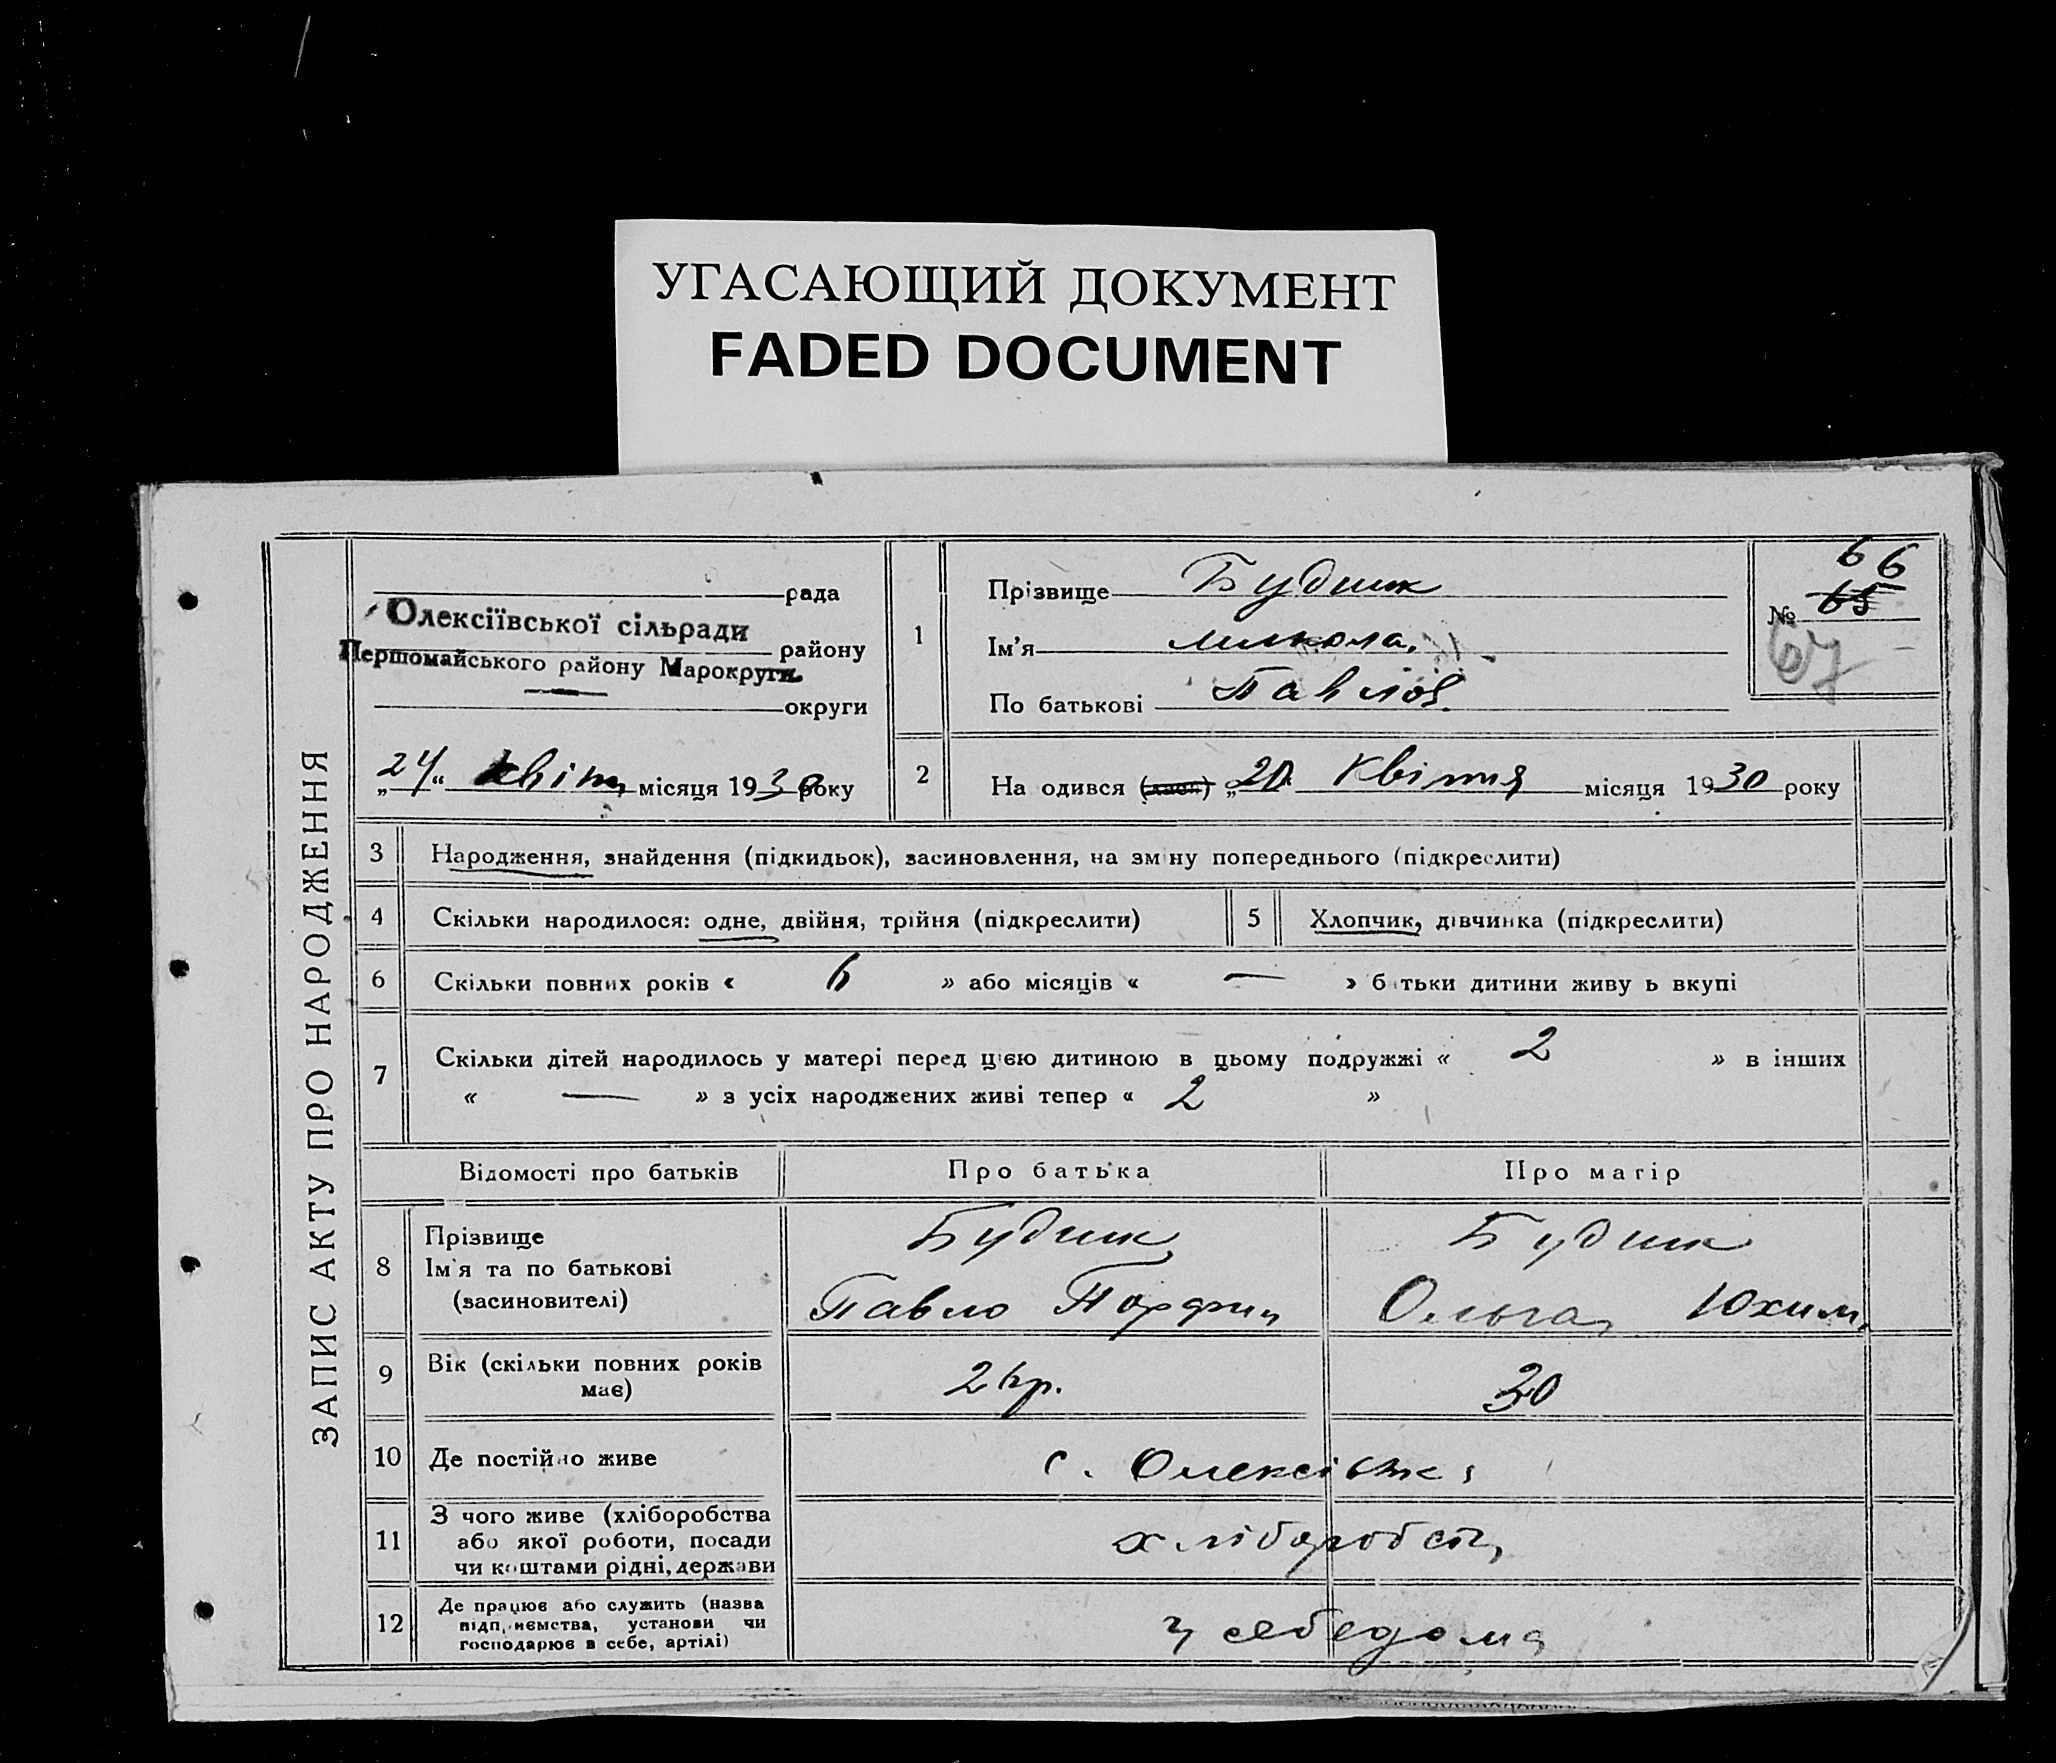 УГАСАЮЩИЙ ДОКУМЕНТ
FADED DOCUMENT
ЗАПИС АКТУ ПРО НАРОДЖЕННЯ
рада
Олексіївської сільради
району
Першомайського району Марокруги
округи
„24“ квітн місяця 1930 року
1
Прізвище Будник
Ім'я Микола
По батькові Павлов.
66
№ 65
67
2 На одився „20 Квітня місяця 1930 року
3 Народження, знайдення (підкидьок), засиновлення, на зміну попереднього (підкреслити)
4 Скільки народилося: одне, двійня, трійня (підкреслити) 5 Хлопчик, дівчинка (підкреслити)
6 Скільки повних років « 6 » або місяців « — » б тьки дитини живу ь вкупі
7 Скільки дітей народилось у матері перед цією дитиною в цьому подружжі « 2 » в інших
« — » з усіх народжених живі тепер « 2 »
Відомості про батьків Про батька Про матір
8 Прізвище
Ім'я та по батькові
(засиновителі)
Будник Будник
Павло Ольга Юхим.
9 Вік (скільки повних років
має)
26р. 30
10 Де постійно живе с. Олексіївка
11 З чого живе (хліборобства
або якої роботи, посади
чи коштами рідні, держави
хліборобств
12 Де працює або служить (назва
підп,иємства, установи чи
господарює в себе, артілі)
у себе дома